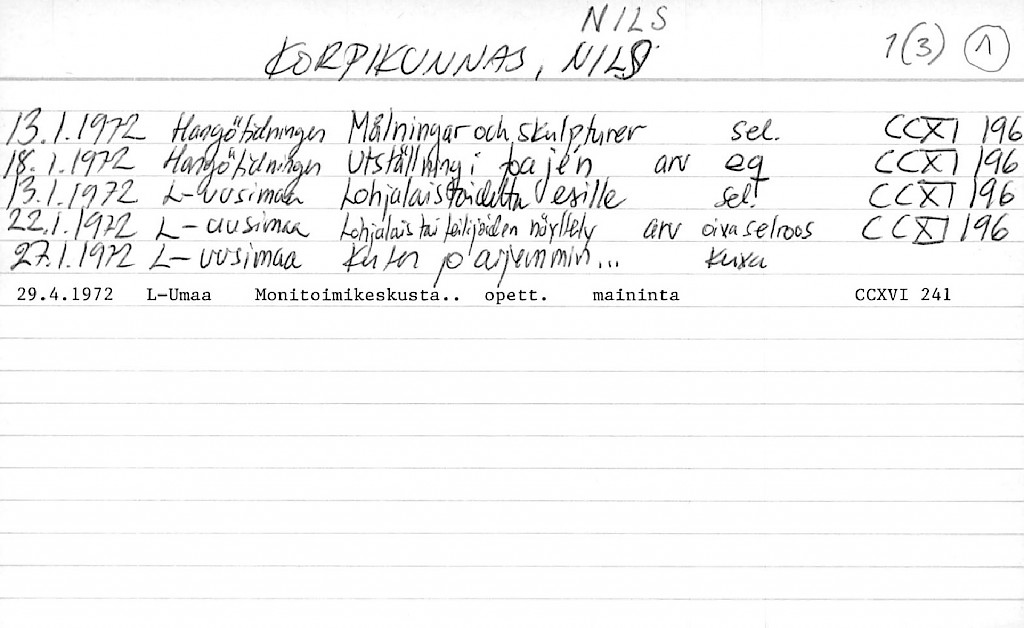 NILS
KORPIKUNNAS, NILS 1(3) 1
13.1.1972 Hangötidningen Målningar och skulpturer sel. CCXI 196
18.1.1972 Hangötidningen Utställning i pajen arv eq CCXI 196
13.1.1972 L-uusimaa Lohjalaistaidetta Vesille sel. CCXI 196
22.1.1972 L-uusimaa Lohjalais taiteilijoiden näyttely arv oiva selroos CCXI 196
27.1.1972 L-uusimaa Kuten jo aijemmin... kuva
29.4.1972 L-Umaa Monitoimikeskusta.. opett. maininta CCXVI 241